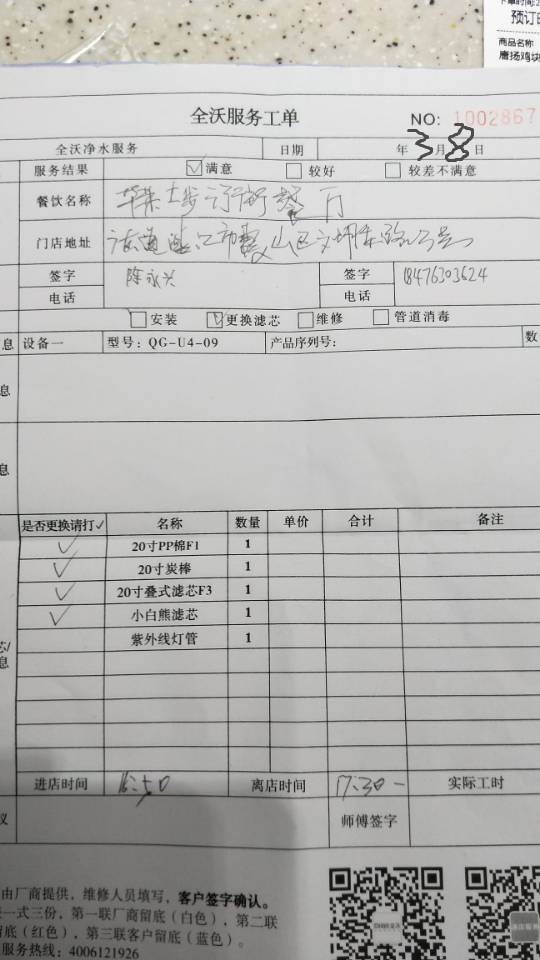 预订
商品名称
唐扬鸡块
全沃服务工单 NO: 1002867
全沃净水服务 日期 年3月8日
服务结果 满意 较好 较差不满意
餐饮名称
门店地址
签字 陈永兴 签字
电话 电话 18476303624
安装 更换滤芯 维修 管道消毒
息 设备一 型号: QG-U4-09 产品序列号: 数
息
息
是否更换请打✓ 名称 数量 单价 合计 备注
✓ 20寸PP棉F1 1
✓ 20寸炭棒 1
✓ 20寸叠式滤芯F3 1
✓ 小白熊滤芯 1
紫外线灯管 1
芯/
息
进店时间 16:50 离店时间 17:30 实际工时
议 师傅签字
由厂商提供，维修人员填写，客户签字确认。
一式三份，第一联厂商留底（白色），第二联
留底（红色），第三联客户留底（蓝色）。
服务热线: 4006121926